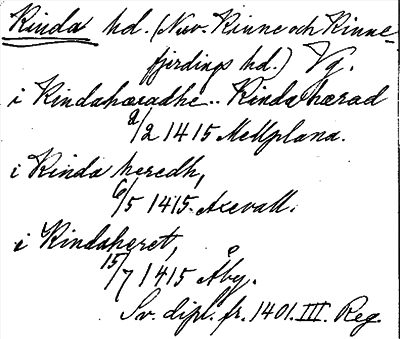 Kinda hd. (Nuv. Kinne och Kinne-
fjerdings hd.) Vg.
i Kindahæradhe .. Kinda hærad
2/2 1415 Mellplana.
i Kinda heredh,
6/5 1415 Axevall.
i Kindaheret,
15/7 1415 Åby.
Sv. dipl. fr. 1401. III. Reg.